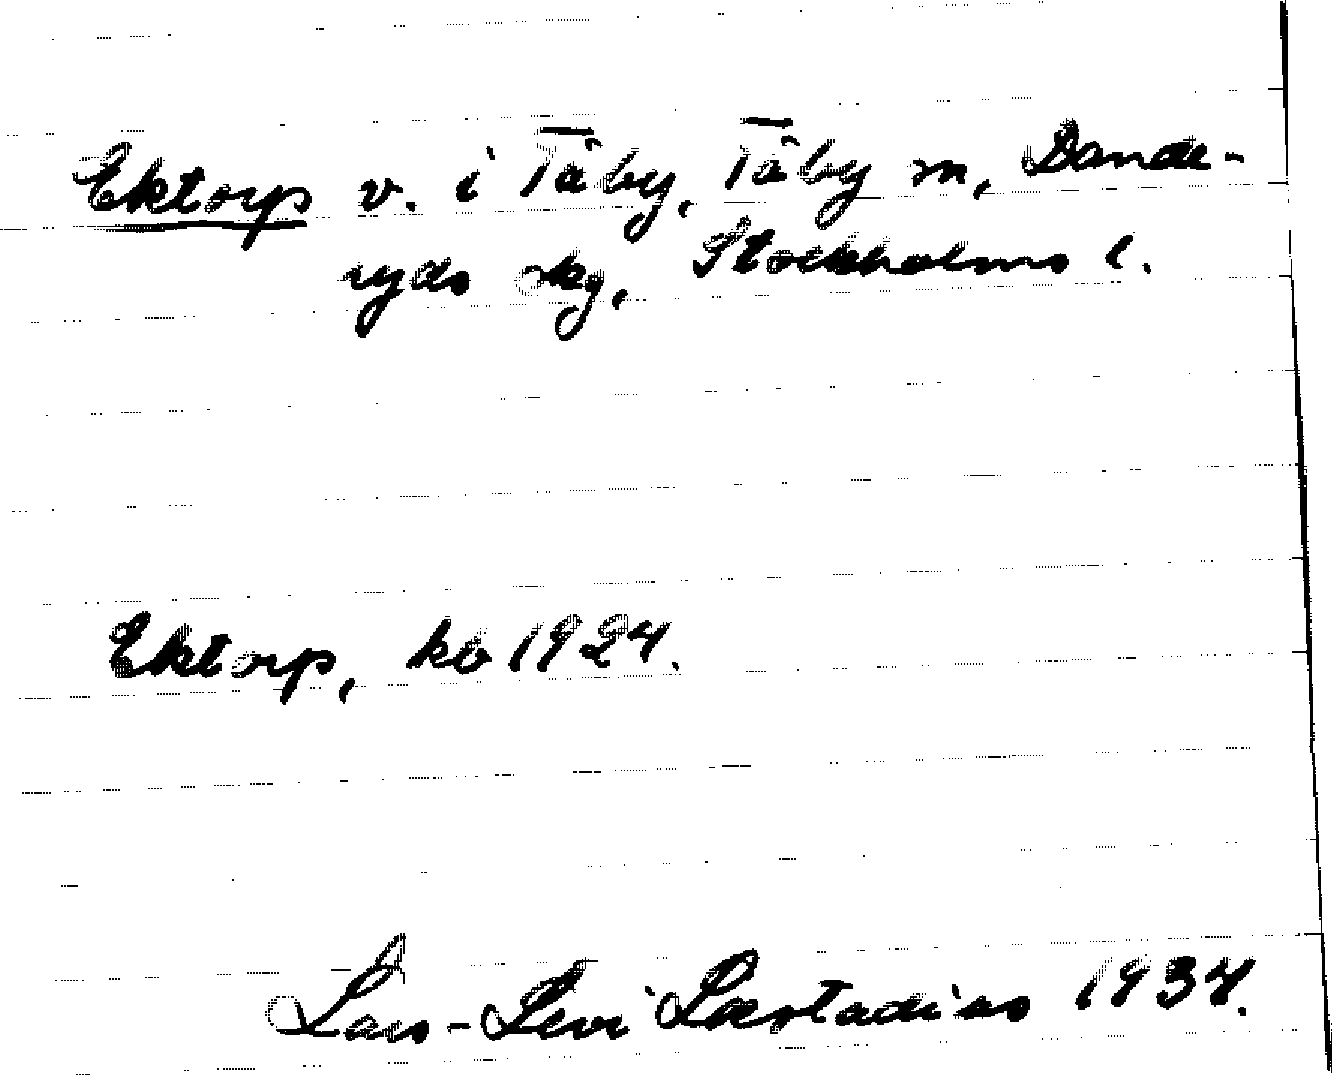 Ektorp v. i Täby, Täby sn, Dande-
ryds skg, Stockholms l.
Ektorp, kb 1924.
Lars-Levi Læstadius 1934.